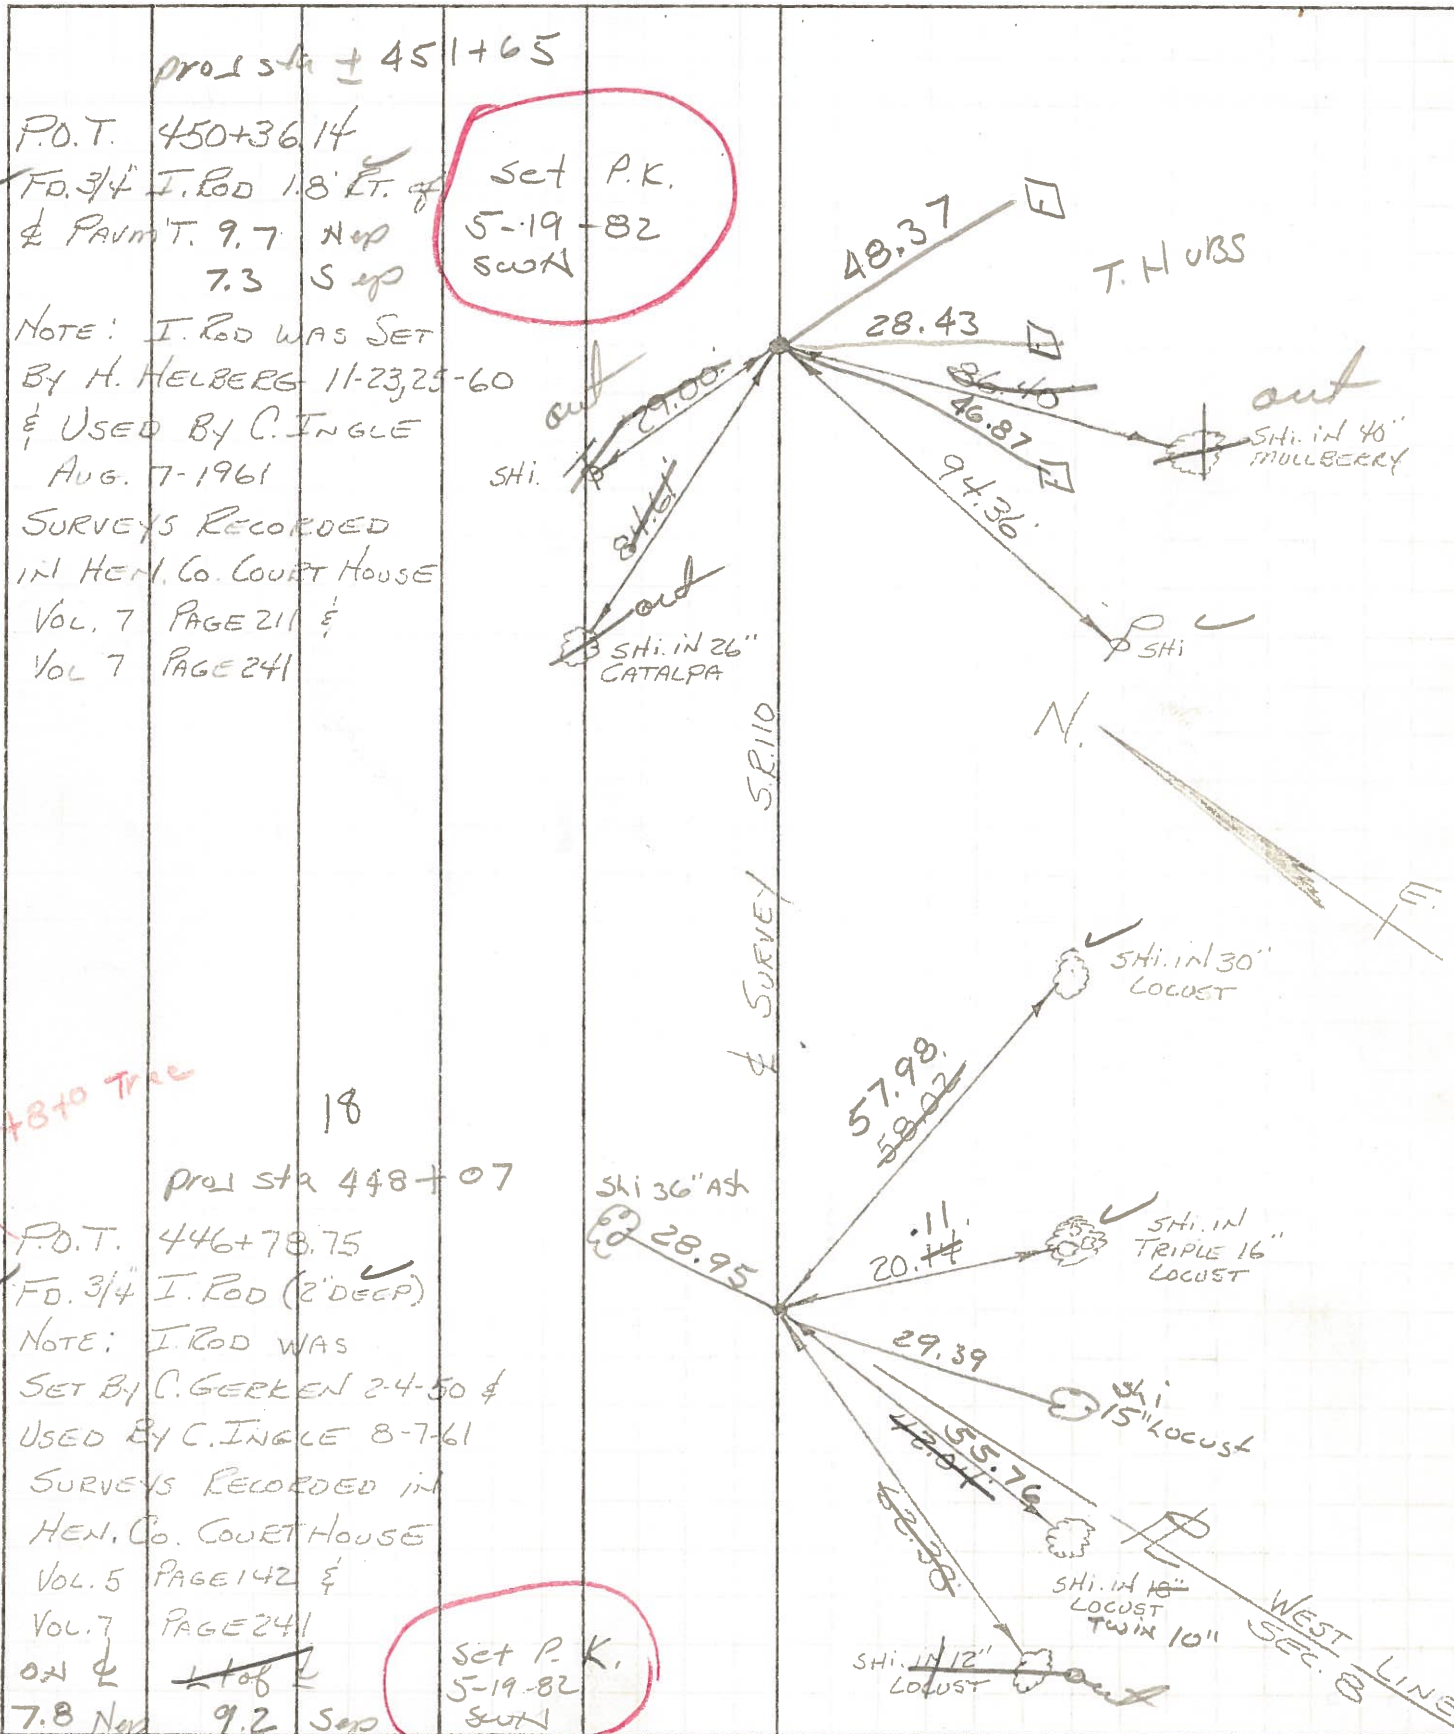 proj sta ± 451+65
P.O.T. 450+36.14
FD. 3/4" I. ROD 1.8' RT. of
℄ PAVM'T. 9.7 Nep
7.3 S ep
Set P.K.
5-19-82
NOTE: I. ROD WAS SET
BY H. HELBERG 11-23,25-60
& USED BY C. INGLE
AUG. 7-1961
SURVEYS RECORDED
IN HEN. CO. COURT HOUSE
VOL. 7 PAGE 211 &
VOL 7 PAGE 241
48.37
T. HUBS
28.43
86.40
46.87
out
SHi. IN 40"
MULLBERRY
out
29.00
SHi.
84.61
94.36
out
SHi. IN 26"
CATALPA
SHi
N.
E.
℄ SURVEY S.R. 110
SHi. IN 30"
LOCUST
57.98
58.02
+8 to Tree
18
proj sta 448+07
P.O.T. 446+78.75
FD. 3/4" I. ROD (2" DEEP)
NOTE: I. ROD WAS
SET BY C. GERKEN 2-4-50 &
USED BY C. INGLE 8-7-61
SURVEYS RECORDED IN
HEN. CO. COURT HOUSE
VOL. 5 PAGE 142 &
VOL. 7 PAGE 241
ON ℄
7.8 Nep 9.2 Sep
Set P.K.
5-19-82
Shi 36" Ash
28.95
.11
20.14
SHi. IN
TRIPLE 16"
LOCUST
29.39
Shi
15" LOCUST
55.76
42.04
62.38
SHi. IN 18"
LOCUST
TWIN 10"
SHi. IN 12"
LOCUST
out
WEST LINE
SEC. 8